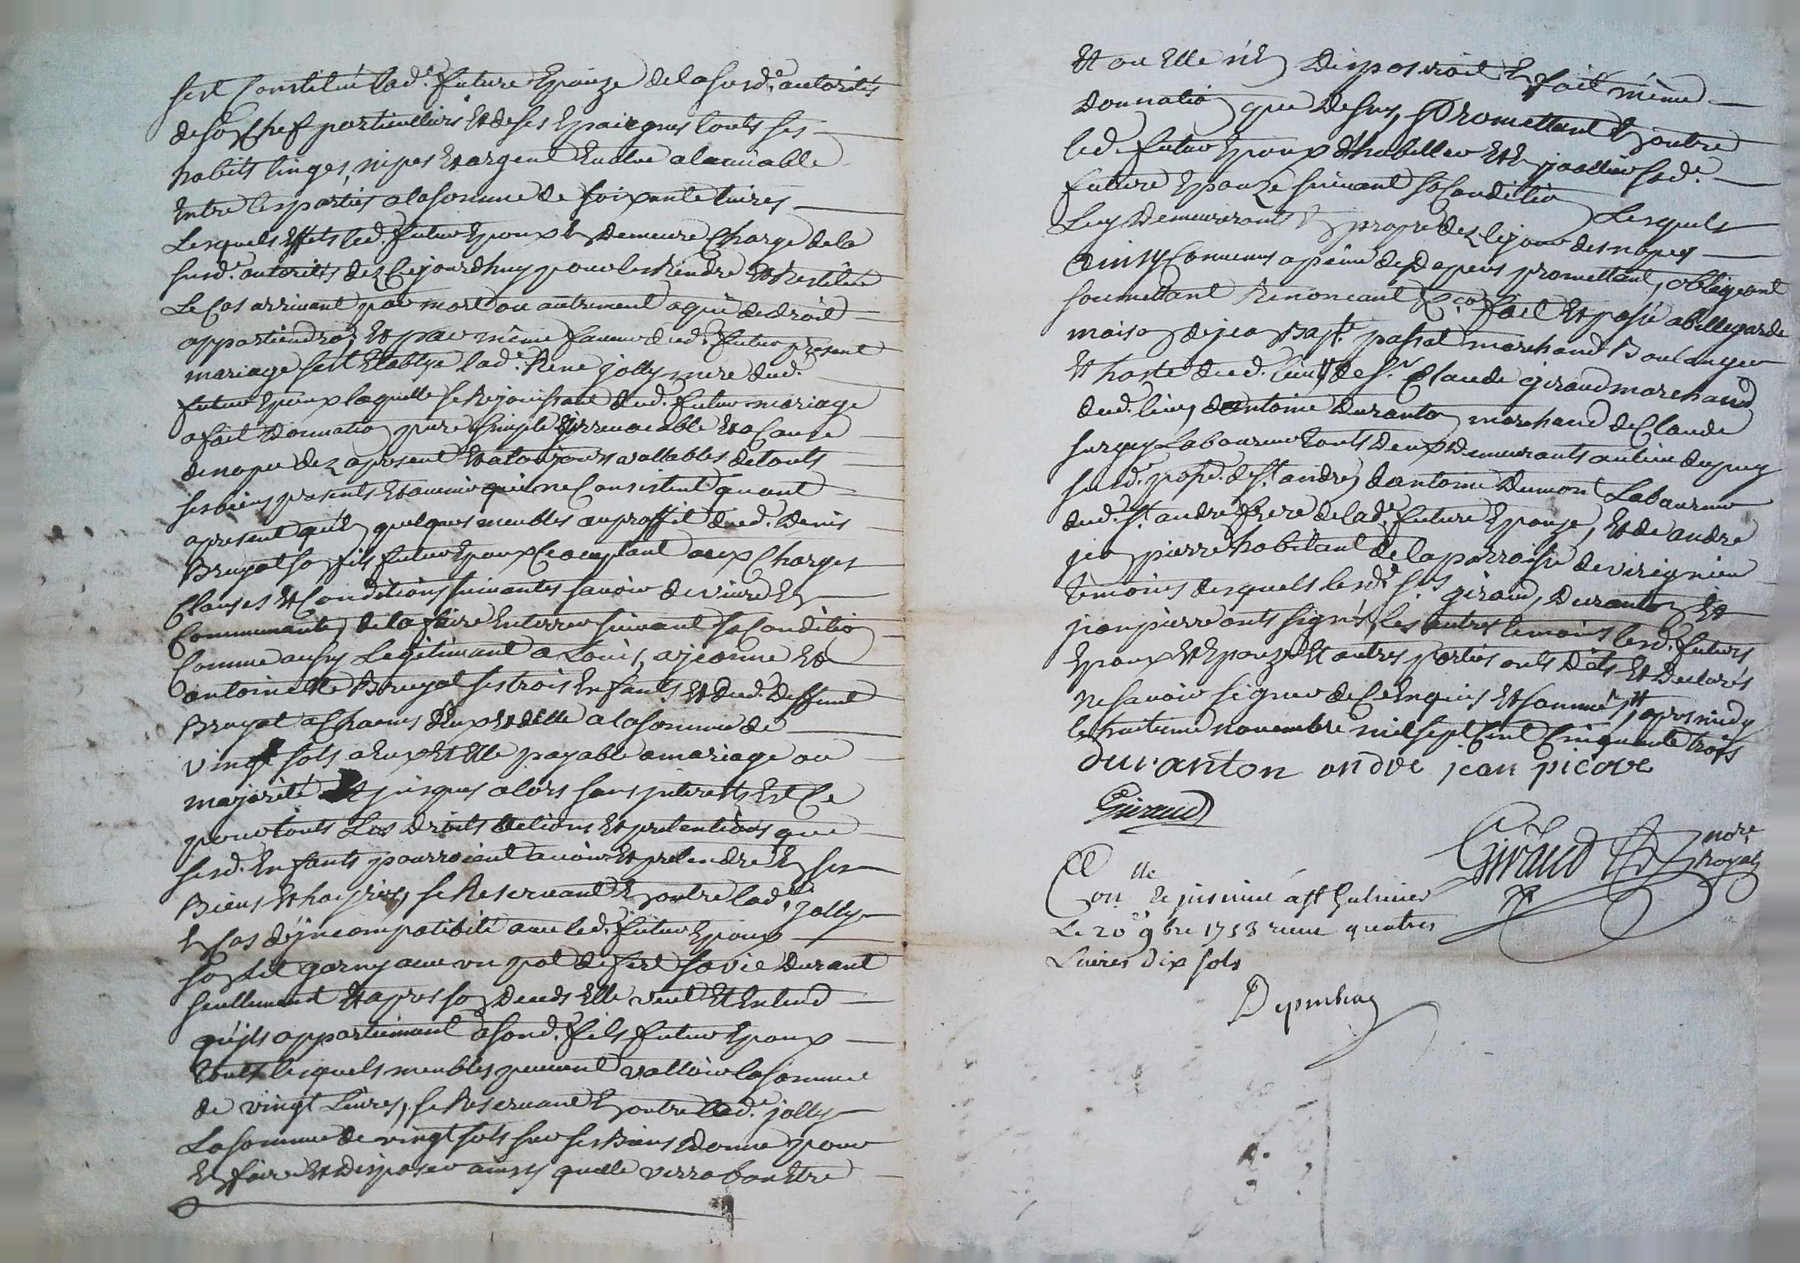 sest Constituée lad.e future Epouze de la susd.e autorités
de son chef particulliers et de ses Epairgnes touts ses
habits linges, nipes et argent Evalué alamiable
Entre les parties a la somme de soixante livres
Lesquels Effets led. futur Epoux En Demeure Chargé de la
susd.e autorités dez Cejourdhuy pour les Rendre et Restituer
Le Cas arrivant par mort ou autrement a qui de droit
appartiendra, et par même faveur dud. futur présent
mariage sest Etablye lad.e Rene jolly mere dud.
futur Epoux laquelle se Rejouissant dud. futur mariage
a fait Donnation pure Simple Irrevocable et a Cause
de nopce dez apresent et atoujours vallables de touts
ses biens presents et avenir qui ne Consistent quant
apresent qu'en quelques meubles au proffit dud. Denis
Bruyat son fils futur Epoux acceptant aux Charges
Clauses et Conditions suivantes savoir de vivre En
Communauté, de la faire Enterrer suivant sa Condition
Comme aussy Legitimant a Louis, a jeanne et
antoinette Bruyat ses trois Enfants et dud. Deffunt
Bruyat a Chacuns d'Eux et d'Elle a la somme de
vingt sols a Eux et Elle payable a mariage ou
majorité et jusques alors sans interests Et Ce
pour touts Les Droits actions et pretentions que
sesd. Enfants pourroient avoir et pretendre En ses
Biens et hoiries, se Reservant En outre lad.e jolly
En Cas d'jncompatibité avec led. futur Epoux
son lit garny avec un pot de fert sa vie Durant
seullement et apres son Deceds Elle veut et Entend
qu'ils appartiennent a sond. fils futur Epoux
touts lesquels meubles peuvent valloir la somme
de vingt Livres, se Reservant En outre lad.e jolly
La somme de vingt sols sur ses Biens Donnés pour
En faire et Disposer ainsy quelle verra bon Etre
Et ou Elle n'En Disposeroit En fait même
Donnation que Dessus, Promettant En outre
led. futur Epoux d'habiller et Enjoallier sad.e
future Epouze suivant sa Condition Lesquels
Luy Demeureront En propre dez le jour des nopces
ainsy Convenus a peine de Depens promettant, obligeant
soumettant Renoncant &.ca fait et passé a bellegarde
maison de jean Bap.te passat marchand Boulanger
et hoste dud. lieu de S.r Claude giraud marchand
dud. lieu, d'antoine Duranton marchand de Claude
Laboureur touts Deux Demeurants au lieu du puy
susd. de St. andre, d'antoine Dumont Laboureur
dud. St. andre frere de lad.e future Epouze, et de andre
jean pierre habitant de la parroisse de virégnieu
témoins desquels lesd. s.rs giraud, Duranton et
jeanpierre ont signés, Les autres temoins lesd. futurs
Epoux et Epouze et autres parties ont Dits et Declarés
ne savoir signer de Ce Enquis et sommés apres midy
le trentieme novembre mil sept Cent Cinquante trois
duranton andre jean piere
Giraud
Giraud no.re royal
Con.lle et insinué a St Galmier
Le 20 9bre 1753 reçu quatres
Livres dix sols